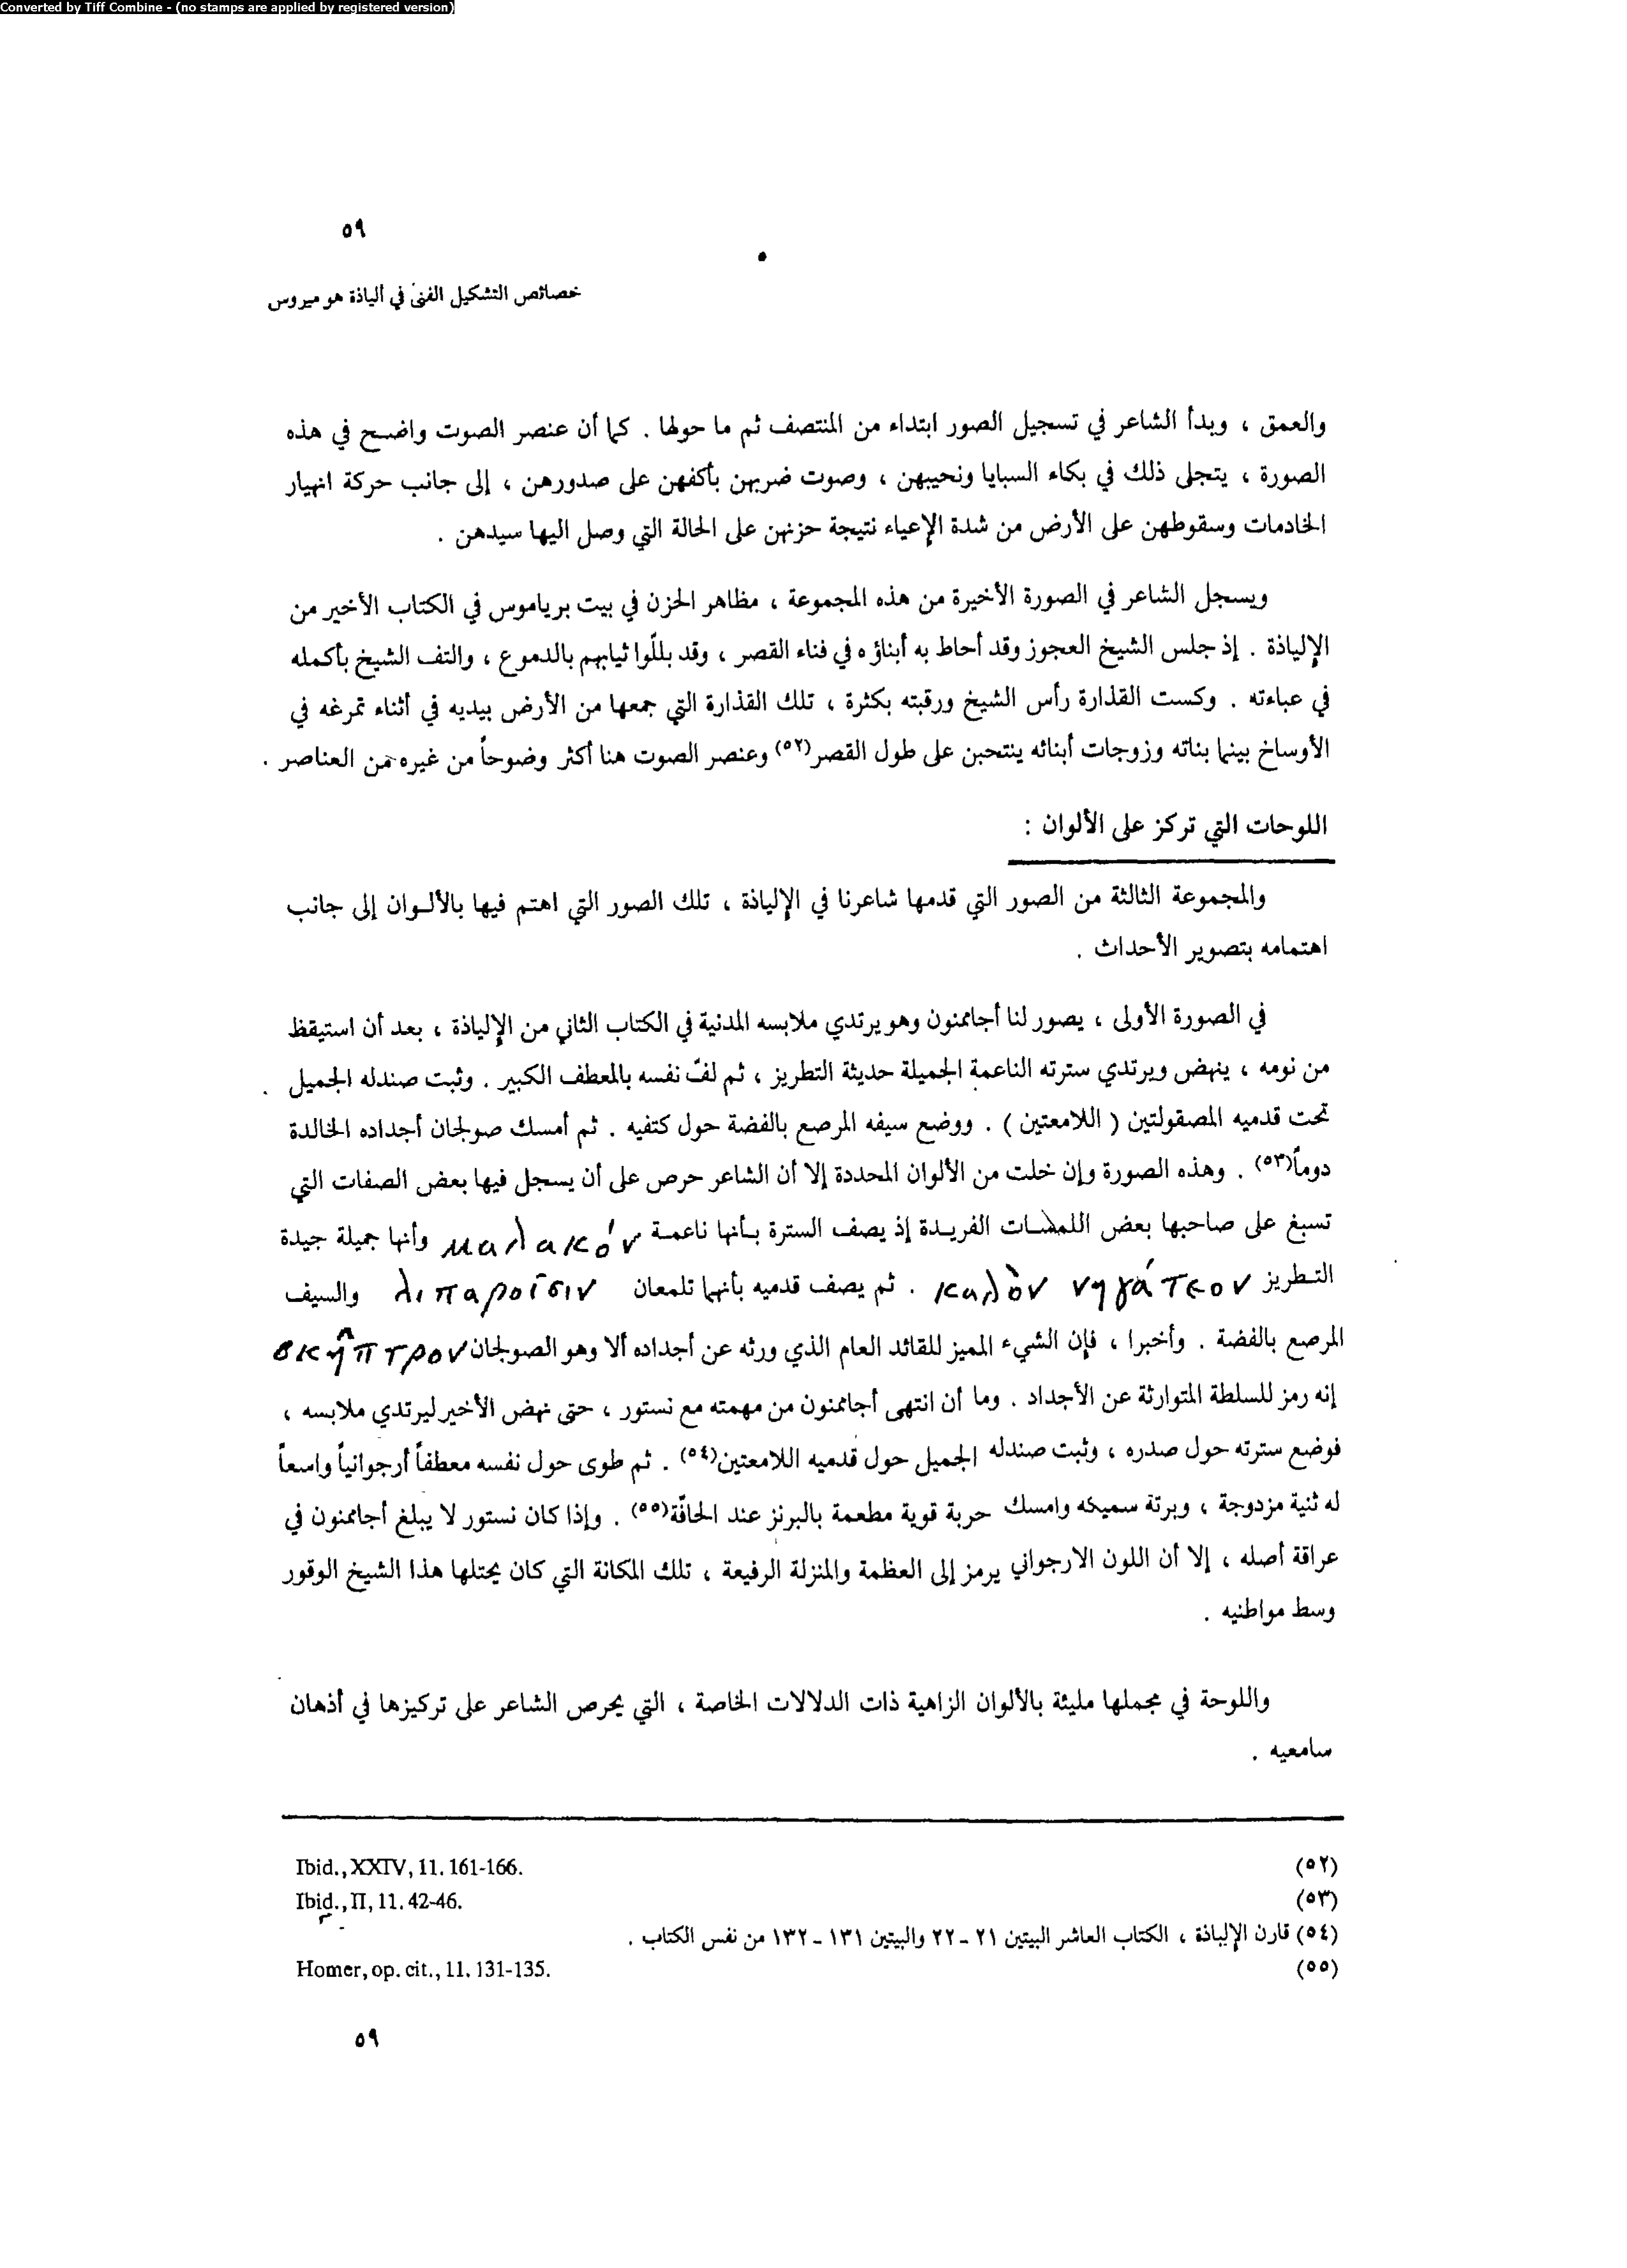 Converted by Tiff Combine - (no stamps are applied by registered version)
٥٩
خصائص التشكيل الفنىّ في ألياذة هوميروس
والعمق ، وبدأ الشاعر في تسجيل الصور ابتداء من المنتصف ثم ما حولها . كما أن عنصر الصوت واضح في هذه
الصورة ، يتجلى ذلك في بكاء السبايا ونحيبهن ، وصوت ضربهن بأكفهن على صدورهن ، إلى جانب حركة انهيار
الخادمات وسقوطهن على الأرض من شدة الإعياء نتيجة حزنهن على الحالة التي وصل اليها سيدهن .
ويسجل الشاعر في الصورة الأخيرة من هذه المجموعة ، مظاهر الحزن في بيت برياموس في الكتاب الأخير من
الإلياذة . إذ جلس الشيخ العجوز وقد أحاط به أبناؤه في فناء القصر ، وقد بللّوا ثيابهم بالدموع ، والتف الشيخ بأكمله
في عباءته . وكست القذارة رأس الشيخ ورقبته بكثرة ، تلك القذارة التي جمعها من الأرض بيديه في أثناء تمرغه في
الأوساخ بينما بناته وزوجات أبنائه ينتحبن على طول القصر(٥٢) وعنصر الصوت هنا أكثر وضوحاً من غيره من العناصر .
اللوحات التي تركز على الألوان :
والمجموعة الثالثة من الصور التي قدمها شاعرنا في الإلياذة ، تلك الصور التي اهتم فيها بالألوان إلى جانب
اهتمامه بتصوير الأحداث .
في الصورة الأولى ، يصور لنا أجاممنون وهو يرتدي ملابسه المدنية في الكتاب الثاني من الإلياذة ، بعد أن استيقظ
من نومه ، ينهض ويرتدي سترته الناعمة الجميلة حديثة التطريز ، ثم لفّ نفسه بالمعطف الكبير . وثبت صندله الجميل
تحت قدميه المصقولتين ( اللامعتين ) . ووضع سيفه المرصع بالفضة حول كتفيه . ثم أمسك صولجان أجداده الخالدة
دوماً(٥٣) . وهذه الصورة وإن خلت من الألوان المحددة إلا أن الشاعر حرص على أن يسجل فيها بعض الصفات التي
تسبغ على صاحبها بعض اللمسات الفريدة إذ يصف السترة بأنها ناعمة μαλακόν وأنها جميلة جيدة
التطريز καλὸν νηγάτεον . ثم يصف قدميه بأنهما تلمعان λιπαροῖσιν والسيف
المرصع بالفضة . وأخبرا ، فإن الشيء المميز للقائد العام الذي ورثه عن أجداده ألا وهو الصولجان σκῆπτρον
إنه رمز للسلطة المتوارثة عن الأجداد . وما أن انتهى أجاممنون من مهمته مع نستور ، حتى نهض الأخير ليرتدي ملابسه ،
فوضع سترته حول صدره ، وثبت صندله الجميل حول قدميه اللامعتين(٥٤) . ثم طوى حول نفسه معطفاً أرجوانياً واسعاً
له ثنية مزدوجة ، وبرتة سميكه وامسك حربة قوية مطعمة بالبرنز عند الحافّة(٥٥) . وإذا كان نستور لا يبلغ أجاممنون في
عراقة أصله ، إلا أن اللون الارجواني يرمز إلى العظمة والمنزلة الرفيعة ، تلك المكانة التي كان يحتلها هذا الشيخ الوقور
وسط مواطنيه .
واللوحة في مجملها مليئة بالألوان الزاهية ذات الدلالات الخاصة ، التي يحرص الشاعر على تركيزها في أذهان
سامعيه .
(٥٢) Ibid., XXIV, 11. 161-166.
(٥٣) Ibid., II, 11. 42-46.
(٥٤) قارن الإلياذة ، الكتاب العاشر البيتين ٢١ - ٢٢ والبيتين ١٣١ - ١٣٢ من نفس الكتاب .
(٥٥) Homer, op. cit., 11. 131-135.
٥٩